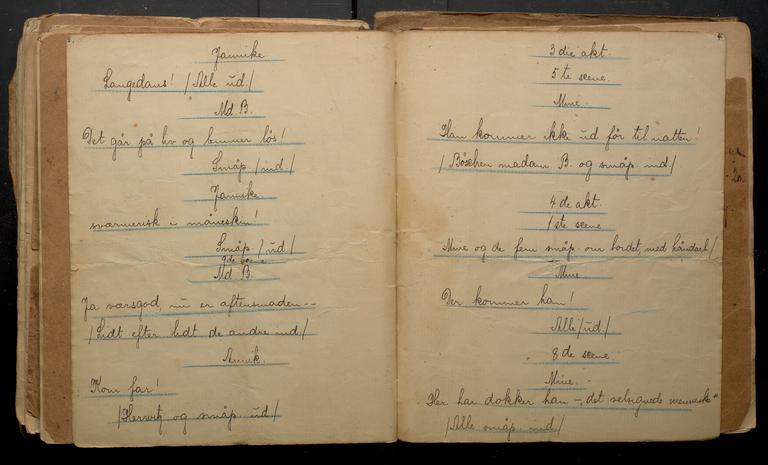 Jannike.
Langedans! /Alle ud/
Md B.
Det går på liv og lemmer løs!
Småp. /ind/
Jannike.
sværmerisk i måneskin!
Småp. /ud/
9de scene
Md B.
Ja værsgod, nu er aftensmaden --
/Lidt efter lidt de andre ind./
Annik.
Kom far!
/Herwitz og småp. ud/
4.
3die akt.
5te scene.
Mine.
Han kommer ikke ud før til natten!
/Böschen madam B. og småp. ind/
4de akt.
1ste scene
Mine og de fem småp. om bordet, med håndarb/
Mine
Der kommer han!
Alle /ud/
8de scene.
Mine.
Her har dokker han -, det velsignede menneske"
/Alle småp. ind/